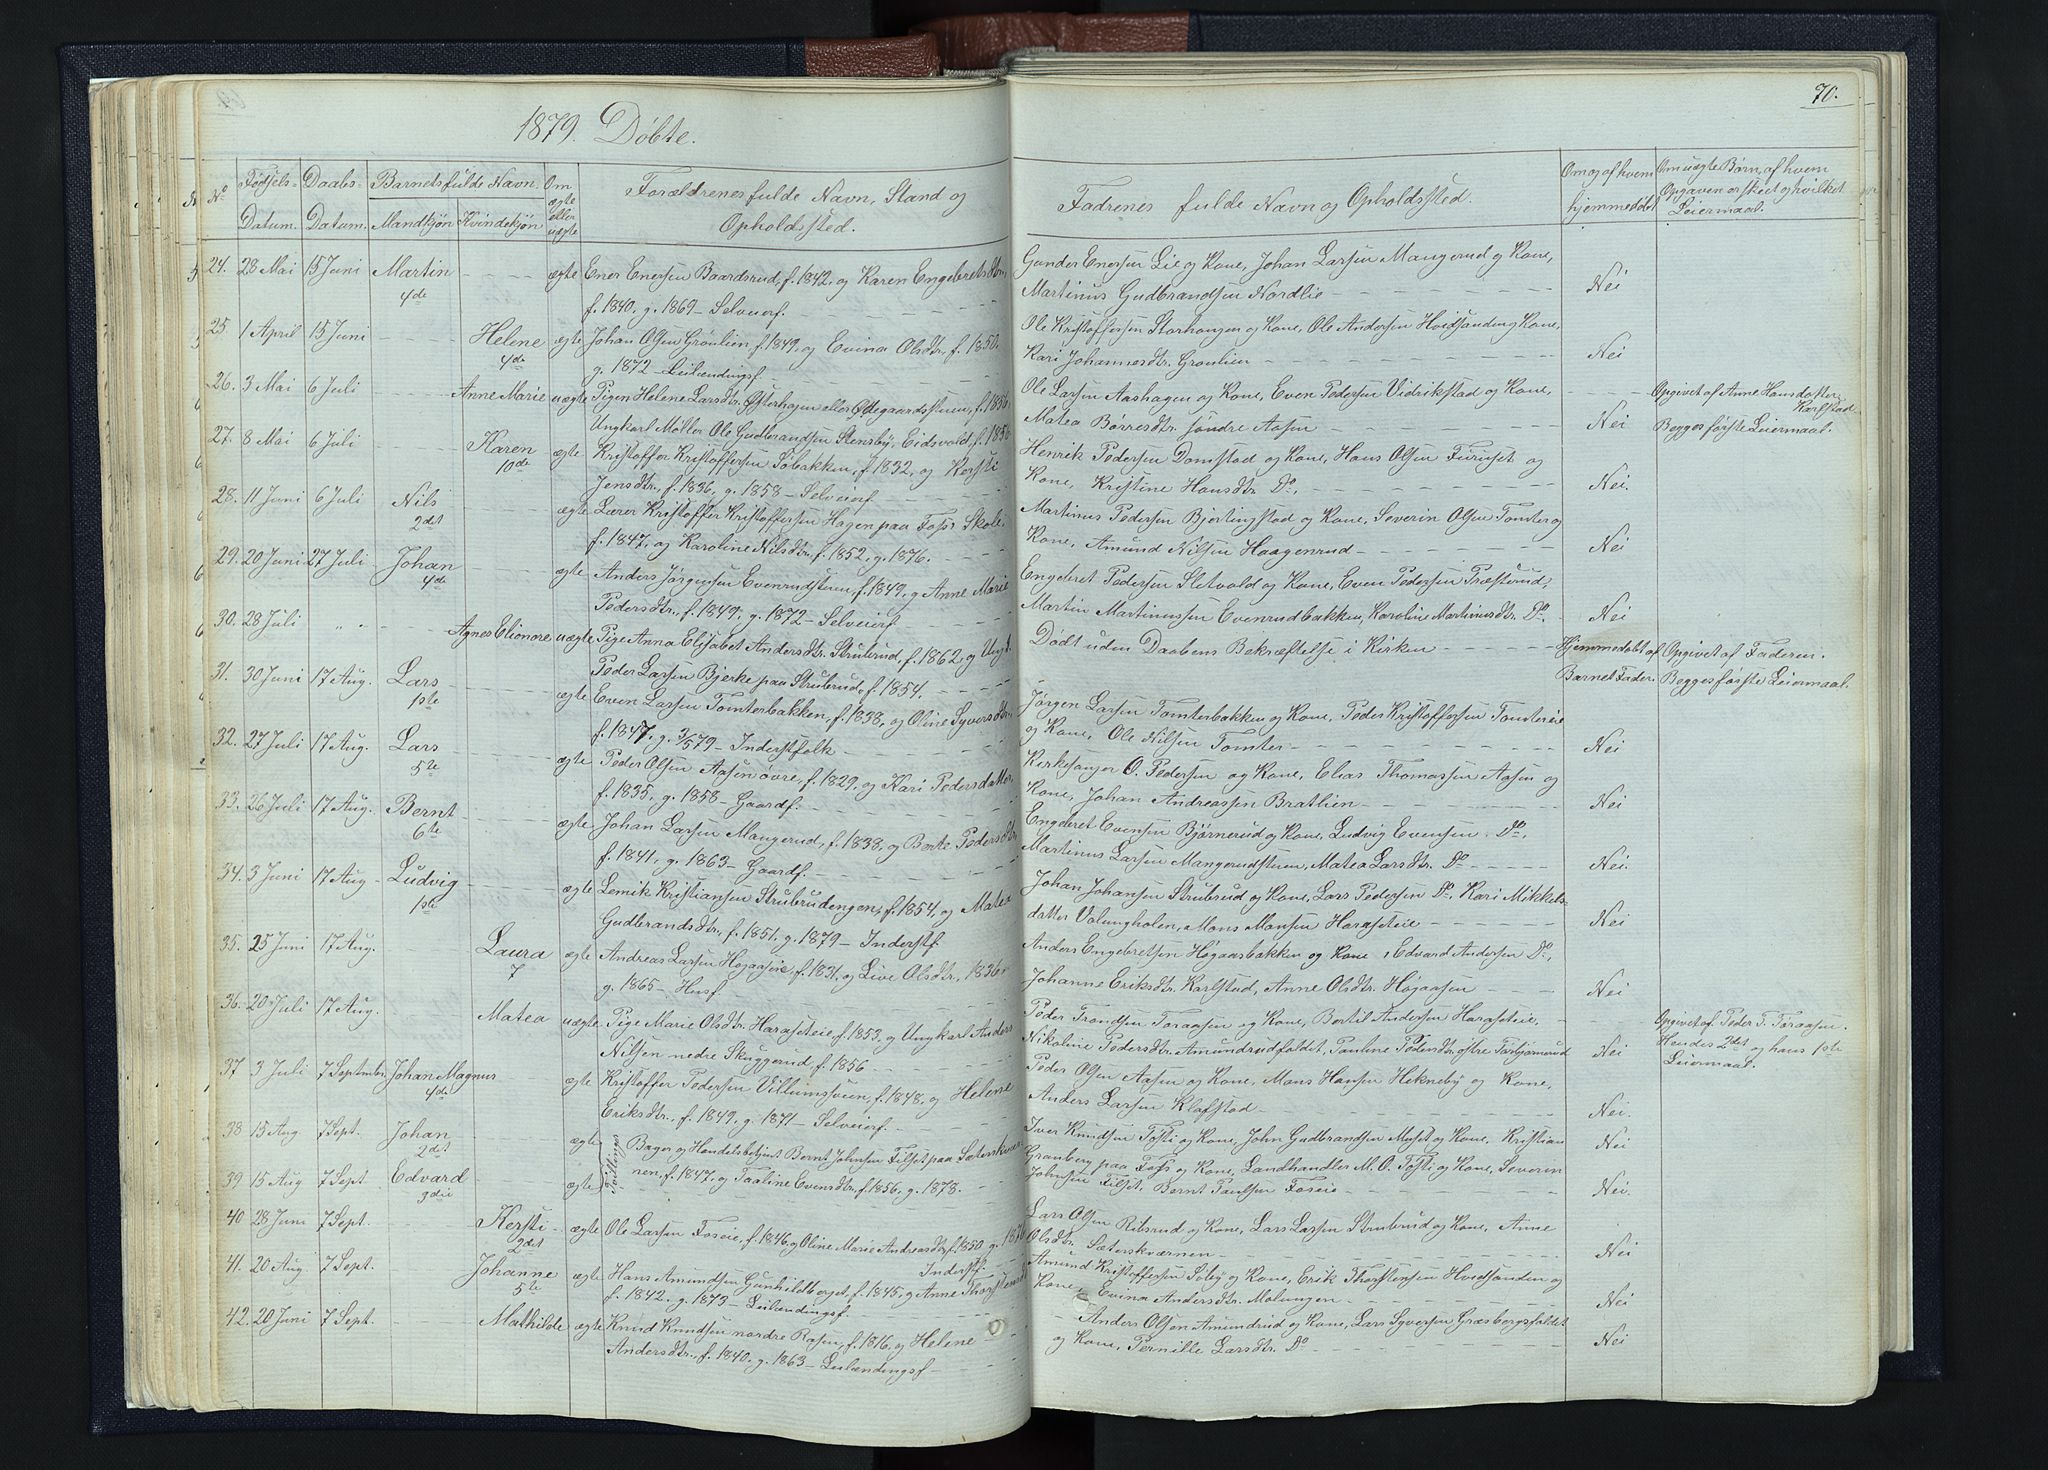 1879. Döbte.
70.
No Fødsels-Datum. Daabs-Datum. Barnets fulde Navn. Mandkjøn Kvindekjøn Om ægte eller uægte Forældrenes fulde Navn, Stand og Opholdssted.
Fadrenes fulde Navn og Opholdssted. Om og af hvem hjemmedøbt Om uægte Børn, af hvem Opgaven er skeet og hvilket Leiermaal.
24. 28 Mai 15 Juni Martin 4de ægte Ener Enersen Baardsrud, f. 1842, og Karen Engebretsdtr,
f. 1840, g. 1869 - Selveierf.
Gunder Enersen Lie og Kone, Johan Larsen Mangerud og Kone,
Martinus Gudbrandsen Nordlie Nei
25 1 April 15 Juni Helene 4de ægte Johan Olsen Grönlien, f. 1849, og Evina Olsdtr, f. 1850.
g. 1872 - Leilændingsf.
Ole Kristoffersen Storhaugen og Kone, Ole Andersen Hvidsanden g Kone,
Kari Johannesdtr. Gronlien Nei
26. 3 Mai 6 Juli Anne Marie uægte Pigen Helene Larsdtr. Østerhagen eller Ødegaardsstuen, f. 1856,
Ungkarl Møller Ole Gudbrandsen Stensby, Eidsvold, f. 1856
Ole Larsen Aashagen og Kone, Even Pedersen Vidrikstad og Kone, Opgivet af Anne Hansdatter Karlstad
Matea Børresdtr. søndre Aasen Nei Begges første Leiermaal.
27. 8 Mai 6 Juli Karen 10de ægte Kristoffer Kristoffersen Søbakken, f. 1832, og Kersti
Jensdtr., f. 1836, g. 1858 - Selveierf.
Henrik Pedersen Domstad og Kone, Hans Olsen Furuset og
Kone, Kristine Hansdtr. Do, Nei.
28. 11 Juni 6 Juli Nils 2det ægte Lærer Kristoffer Kristoffersen Hagen paa Foss Skole,
f. 1847, og Karoline Nilsdtr. f. 1852, g. 1876.
Martinus Pedersen Bjertingstad og Kone, Severin Olsen Tomter og
Kone, Amund Nilsen Haagenrud Nei
29. 20 Juni 27 Juli Johan 4de ægte Anders Jørgensen Evenrudstuen, f. 1849, g Anne Marie
Pedersdtr., f. 1849, g. 1872 - Selveierf
Engebret Pedersen Sletvold og Kone, Even Pedersen Præsterud,
Martin Martinussen Evenrudbakken, Karoline Martinusdtr. Do. Nei
30. 28 Juli " " Agnes Elionore uægte Pige Anna Elisabet Andersdtr. Strubrud, f. 1862, og Ungk.
Peder Larsen Bjerke paa Strubrud, f. 1854.
Dødt uden Daabens Bekræftelse i Kirken Hjemmedøbt af Opgivet af Faderen.
Barnet Fader. Begges første Leiermaal.
31. 30 Juni 17 Aug. Lars 1ste ægte Even Larsen Tomterbakken, f. 1838, og Oline Syversdtr.,
f. 1847, g. 3/5 79 - Inderstfolk
Jørgen Larsen Tomterbakken og Kone, Peder Kristoffersen Tomtereie
og Kone, Ole Nilsen Tomter Nei
32. 27 Juli 17 Aug. Lars 5te ægte Peder Olsen Aasen øvre, f. 1829, og Kari Pedersdatter,
f. 1835, g. 1858 - Gaardf.
Kirkesanger O. Pedersen og Kone, Elias Thomassen Aasen og
Kone, Johan Andreassen Bratlien Nei
33. 26 Juli 17 Aug. Bernt 6te ægte Johan Larsen Mangerud, f. 1838, og Berte Pedersdtr
f. 1841, g. 1863 - Gaardf.
Engebret Evensen Bjørnerud og Kone, Ludvig Evensen Do,
Martinus Larsen Mangerudstuen, Matea Larsdtr. Do Nei.
34. 3 Juni 17 Aug Ludvig 1ste ægte Lemik Kristiansen Strubrudengen, f. 1854, og Matea
Gudbrandsdtr., f. 1851, g. 1879 - Inderstf.
Johan Johansen Strubrud og Kone, Lars Pedersen Do, Kari Mikkels-
datter Valungholen, Mons Monsen Haraseteie Nei
35. 25 Juni 17 Aug. Laura 7 ægte Andreas Larsen Høgaaseie, f. 1831, og Live Olsdtr. 1836
g. 1865 - Husf
Anders Engebretsen Høgaasbakken og Kone, Edvard Andersen Do,
Johanne Eriksdtr. Karlstad, Anne Olsdtr. Høgaasen Nei
36. 20 Juli 17 Aug. Matea uægte Pige Marie Olsdtr. Haraseteie, f. 1853, og Ungkarl Anders
Nilsen nedre Skuggerud, f. 1856
Peder Trondsen Toraasen og Kone, Bertil Andersen Haraseteie, Opgivet af Peder T. Toraasen.
Nikoline Pedersdtr. Amundrudfaldet, Pauline Pedersdtr. østre Torbjørnsrud Nei Hendes 2det og hans 1ste Leiermaal.
37 3 Juli 7 Septmbr. Johan Magnus 4de ægte Kristoffer Pedersen Villumsveen, f. 1848, og Helene
Eriksdtr., f. 1849, g. 1871 - Selveierf.
Peder Olsen Aasen og Kone, Mons Hansen Hekneby og Kone,
Anders Larsen Klafstad Nei.
38 15 Aug 7 Sept. Johan 2det ægte Tvillinger Bager og Handelsbetjent Bernt Johnsen Filset paa Sæterskvær-
39 15 Aug 7 Sept. Edvard 3die ægte nen, f. 1847, og Paaline Evensdtr, f. 1856, g. 1878.
Iver Knudsen Tosti og Kone, John Gudbrandsen Muset og Kone, Kristian Nei
Granberg paa Foss og Kone, Landhandler M. O. Tosti og Kone, Severin
Johnsen Filset, Bernt Paulsen Foseie Nei.
40 28 Juni 7 Sept. Kersti 2det ægte Ole Larsen Foseie, f. 1846, og Oline Marie Andreasdtr, f. 1850 g. 1876
Inderstf.
Lars Olsen Ribsrud og Kone, Lars Larsen Strubrud og Kone, Anne
Olsdtr. Sæterskværnen Nei
41. 20 Aug 7 Sept. Johanne 5te ægte Hans Amundsen Gunhildberget, f. 1845, g Anne Thorstensdtr
f. 1842, g. 1873 - Leilændingsf.
Amund Kristoffersen Søby og Kone, Erik Thorstensen Hvidsanden og
Kone, Evina Andersdtr. Malungen Nei
42. 20 Juni 7 Sept. Mathilde ægte Knud Knudsen nordre Rasen, f. 1816, og Helene
Andersdtr., f. 1840, g. 1863 - Leilændingsf
Anders Olsen Amundrud og Kone, Lars Syversen Græsbergsfaldet
og Kone, Pernille Larsdtr. Do Nei